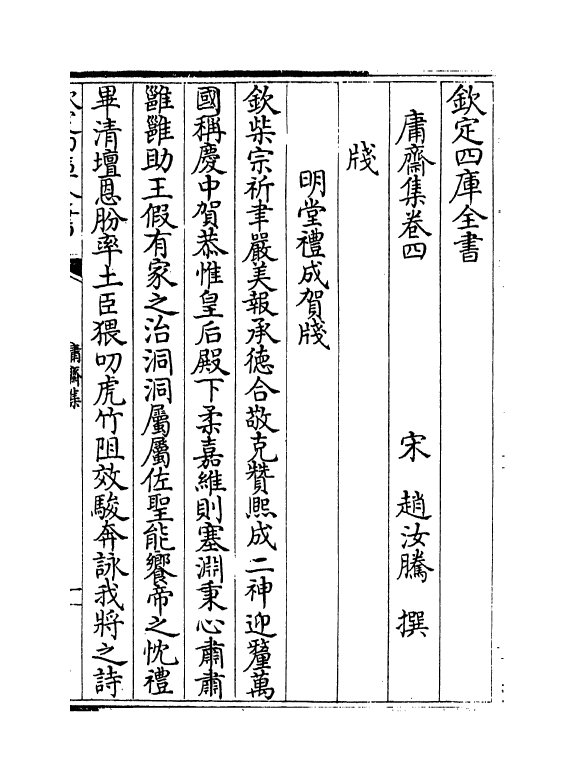 欽定四庫全書
庸齋集卷四
宋 趙汝騰 撰
牋
明堂禮成賀牋
欽柴宗祈聿嚴美報承徳合敬克贊熈成二神迎釐萬
國稱慶中賀恭惟皇后殿下柔嘉維則塞淵秉心肅肅
雝雝助王假有家之治洞洞屬屬佐聖能饗帝之忱禮
畢清壇恩肦率土臣猥叨虎竹阻效駿奔詠我將之詩
庸齋集
一